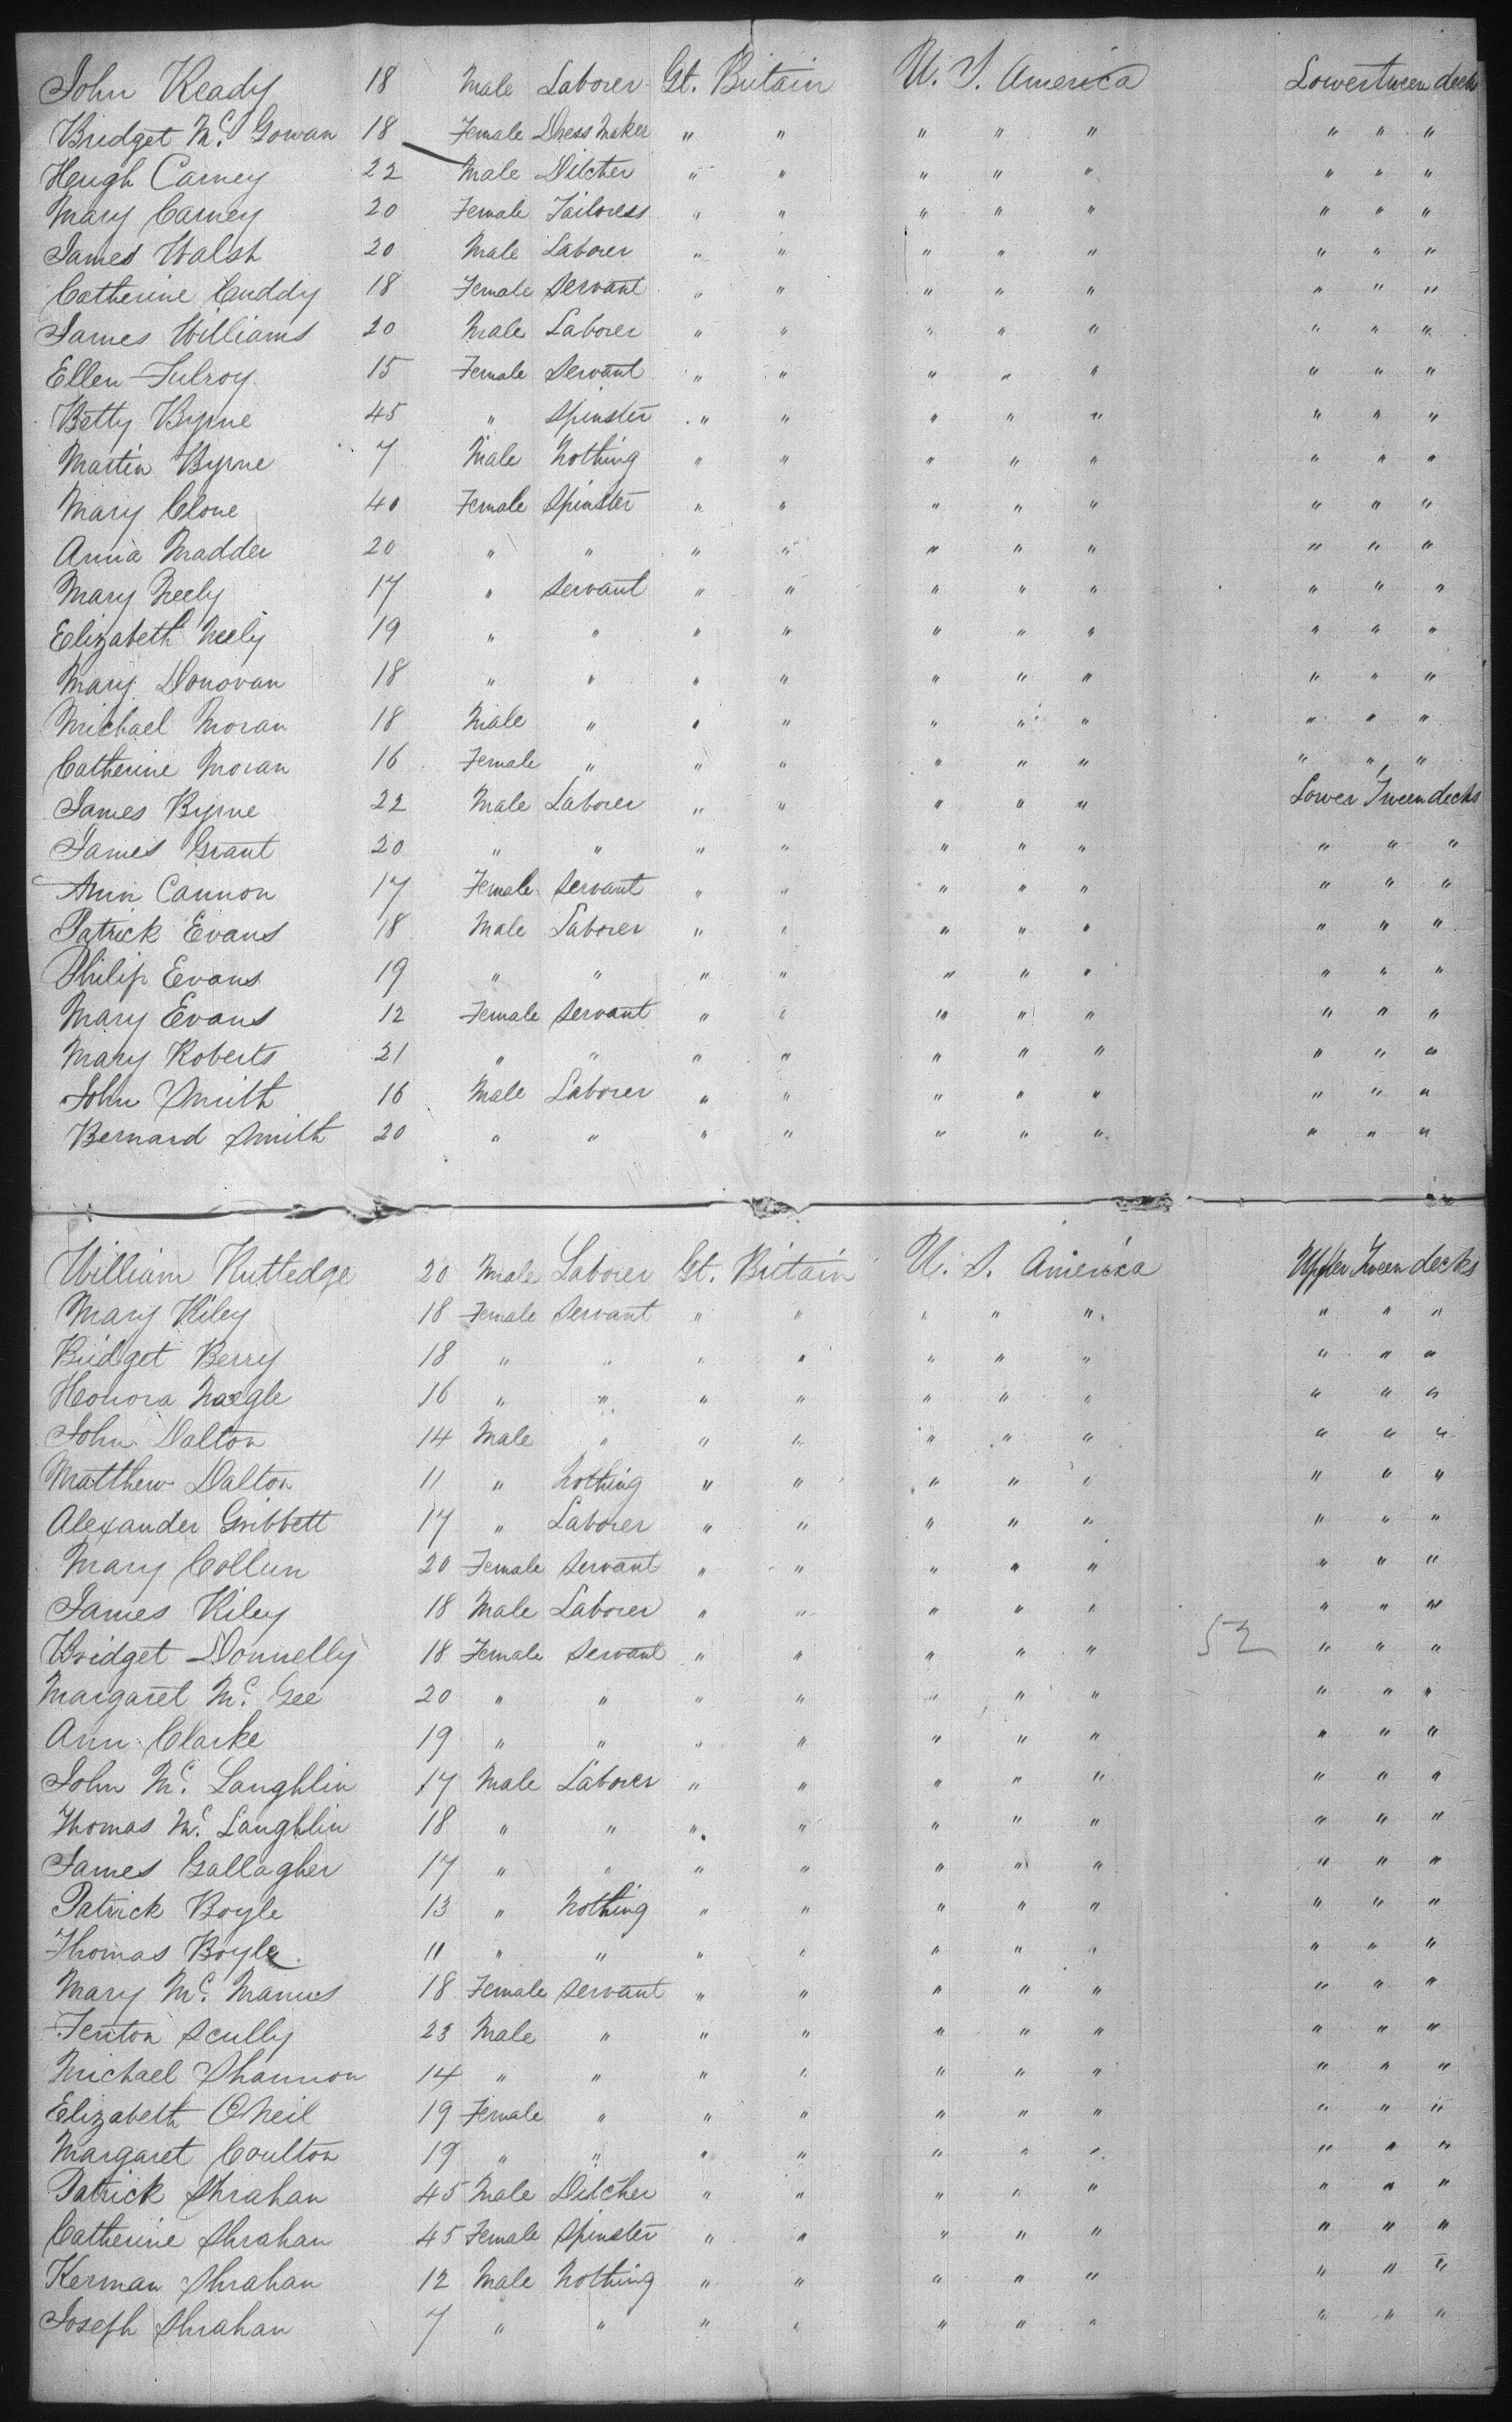 John Keady 18 Male Laborer Gt. Britain U. S. America Lower tween decks
Bridget Mc. Gowan 18 Female Dress Maker " " " " " " " "
Hugh Carney 22 Male Ditcher " " " " " " " "
Mary Carney 20 Female Tailoress " " " " " " " "
James Walsh 20 Male Laborer " " " " " " " "
Catherine Cuddy 18 Female Servant " " " " " " " "
James Williams 20 Male Laborer " " " " " " " "
Ellen 15 Female Servant " " " " " " " "
Betty Byrne 45 " Spinster " " " " " " " "
Martin Byrne 7 Male Nothing " " " " " " " "
Mary Clone 40 Female Spinster " " " " " " " "
Anna Madden 20 " " " " " " " " " "
Mary Neely 17 " Servant " " " " " " " "
Elizabeth Neely 19 " " " " " " " " " "
Mary Donovan 18 " " " " " " " " " "
Michael Moran 18 Male " " " " " " " " "
Catherine Moran 16 Female " " " " " " " " "
James Byrne 22 Male Laborer " " " " " Lower Tween decks
James Grant 20 " " " " " " " " " "
Ann Cannon 17 Female Servant " " " " " " " "
Patrick Evans 18 Male Laborer " " " " " " " "
Philip Evans 19 " " " " " " " " " "
Mary Evans 12 Female Servant " " " " " " " "
Mary Roberts 21 " " " " " " " " " "
John Smith 16 Male Laborer " " " " " " " "
Bernard Smith 20 " " " " " " " " " "
William Ruttedge 20 Male Laborer Gt. Britain U. S. America Upper Tween decks
Mary Kiley 18 Female Servant " " " " " " " "
Bridget Berry 18 " " " " " " " " " "
Honora Naegle 16 " " " " " " " " " "
John Dalton 14 Male " " " " " " " " "
Matthew Dalton 11 " Nothing " " " " " " " "
Alexander Gribbett 17 " Laborer " " " " " " " "
Mary Collun 20 Female Servant " " " " " " " "
James Kiley 18 Male Laborer " " " " " " " "
Bridget Donnelly 18 Female Servant " " " " " 52 " " "
Margaret Mc. Gee 20 " " " " " " " " " "
Ann Clarke 19 " " " " " " " " " "
John Mc. Laughlin 17 Male Laborer " " " " " " " "
Thomas Mc. Laughlin 18 " " " " " " " " " "
James Gallagher 17 " " " " " " " " " "
Patrick Boyle 13 " Nothing " " " " " " " "
Thomas Boyle 11 " " " " " " " " " "
Mary Mc. Manus 18 Female Servant " " " " " " " "
Fenton Scully 23 Male " " " " " " " " "
Michael Shannon 14 " " " " " " " " " "
Elizabeth O Neil 19 Female " " " " " " " " "
Margaret Coulton 19 " " " " " " " " " "
Patrick Shrahan 45 Male Ditcher " " " " " " " "
Catherine Shrahan 45 Female Spinster " " " " " " " "
Kerman Shrahan 12 Male Nothing " " " " " " " "
Joseph Shrahan 7 " " " " " " " " " "